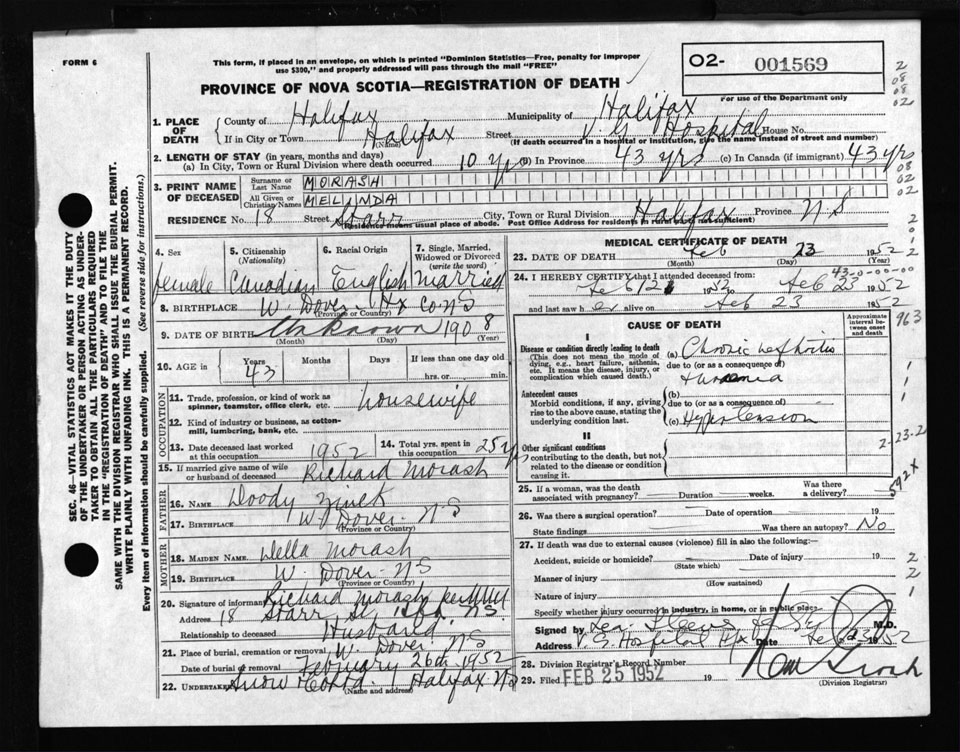 FORM 6
This form, if placed in an envelope, on which is printed "Dominion Statistics—Free, penalty for improper
use $300," and properly addressed will pass through the mail "FREE"
PROVINCE OF NOVA SCOTIA—REGISTRATION OF DEATH
O2- 001569
For use of the Department only
1. PLACE OF DEATH
County of Halifax Municipality of Halifax
If in City or Town Halifax Street V. G Hospital House No.
(Name) (If death occurred in a hospital or institution, give the name instead of street and number)
2. LENGTH OF STAY (in years, months and days)
(a) In City, Town or Rural Division where death occurred 10 yrs (b) In Province 43 yrs (c) In Canada (if immigrant) 43 yrs
3. PRINT NAME OF DECEASED
Surname or Last Name MORASH
All Given or Christian Names MELINDA
RESIDENCE No. 18 Street Starr City, Town or Rural Division Halifax Province N.S
(Residence means usual place of abode. Post Office Address for residents in rural parts not sufficient)
4. Sex 5. Citizenship (Nationality) 6. Racial Origin 7. Single, Married, Widowed or Divorced (write the word)
female Canadian English married
8. BIRTHPLACE W. Dover Hx Co NS
(Province or Country)
9. DATE OF BIRTH Unknown 1908
(Month) (Day) (Year)
10. AGE in Years Months Days If less than one day old
43 hrs. or min.
OCCUPATION
11. Trade, profession, or kind of work as
spinner, teamster, office clerk, etc. housewife
12. Kind of industry or business, as cotton-
mill, lumbering, bank, etc.
13. Date deceased last worked
at this occupation 1952
14. Total yrs. spent in
this occupation 25 yrs
15. If married give name of wife
or husband of deceased Richard Morash
FATHER
16. NAME Doody Zinck
17. BIRTHPLACE W. Dover N S
(Province or Country)
MOTHER
18. MAIDEN NAME Della Morash
19. BIRTHPLACE W. Dover NS
(Province or Country)
20. Signature of informant Richard Morash
Address 18 Starr St Hfx NS
Relationship to deceased Husband
21. Place of burial, cremation or removal W. Dover NS
Date of burial or removal February 26th 1952
22. Undertaker Snow Halifax NS
(Name and address)
MEDICAL CERTIFICATE OF DEATH
23. DATE OF DEATH Feb 23 1952
(Month) (Day) (Year)
24. I HEREBY CERTIFY that I attended deceased from:
Feb 12 1952 to Feb 23 1952
and last saw her alive on Feb 23 1952
43-0-00-00
CAUSE OF DEATH
Approximate interval between onset and death
I
Disease or condition directly leading to death
(This does not mean the mode of
dying, e.g., heart failure, asthenia,
etc. It means the disease, injury, or
complication which caused death.)
(a) Chronic nephritis
due to (or as a consequence of)
Antecedent causes
Morbid conditions, if any, giving
rise to the above cause, stating the
underlying condition last.
(b)
due to (or as a consequence of)
(c) Hypertension
II
Other significant conditions
contributing to the death, but not
related to the disease or condition
causing it.
963
2-23-2
592x
25. If a woman, was the death
associated with pregnancy? Duration weeks. Was there a delivery?
26. Was there a surgical operation? Date of operation 19
State findings Was there an autopsy? No
27. If death was due to external causes (violence) fill in also the following:
Accident, suicide or homicide? Date of injury 19
(State which)
Manner of injury
(How sustained)
Nature of injury
Specify whether injury occurred in industry, in home, or in public place
Signed by M.D.
Address V. G Hospital Hfx Date Feb 23 1952
28. Division Registrar's Record Number
29. Filed FEB 25 1952 19
(Division Registrar)
SEC. 46—VITAL STATISTICS ACT MAKES IT THE DUTY
OF THE UNDERTAKER OR PERSON ACTING AS UNDER-
TAKER TO OBTAIN ALL THE PARTICULARS REQUIRED
IN THE "REGISTRATION OF DEATH" AND TO FILE THE
SAME WITH THE DIVISION REGISTRAR WHO SHALL ISSUE THE BURIAL PERMIT.
WRITE PLAINLY WITH UNFADING INK. THIS IS A PERMANENT RECORD.
Every item of information should be carefully supplied. (See reverse side for instructions.)